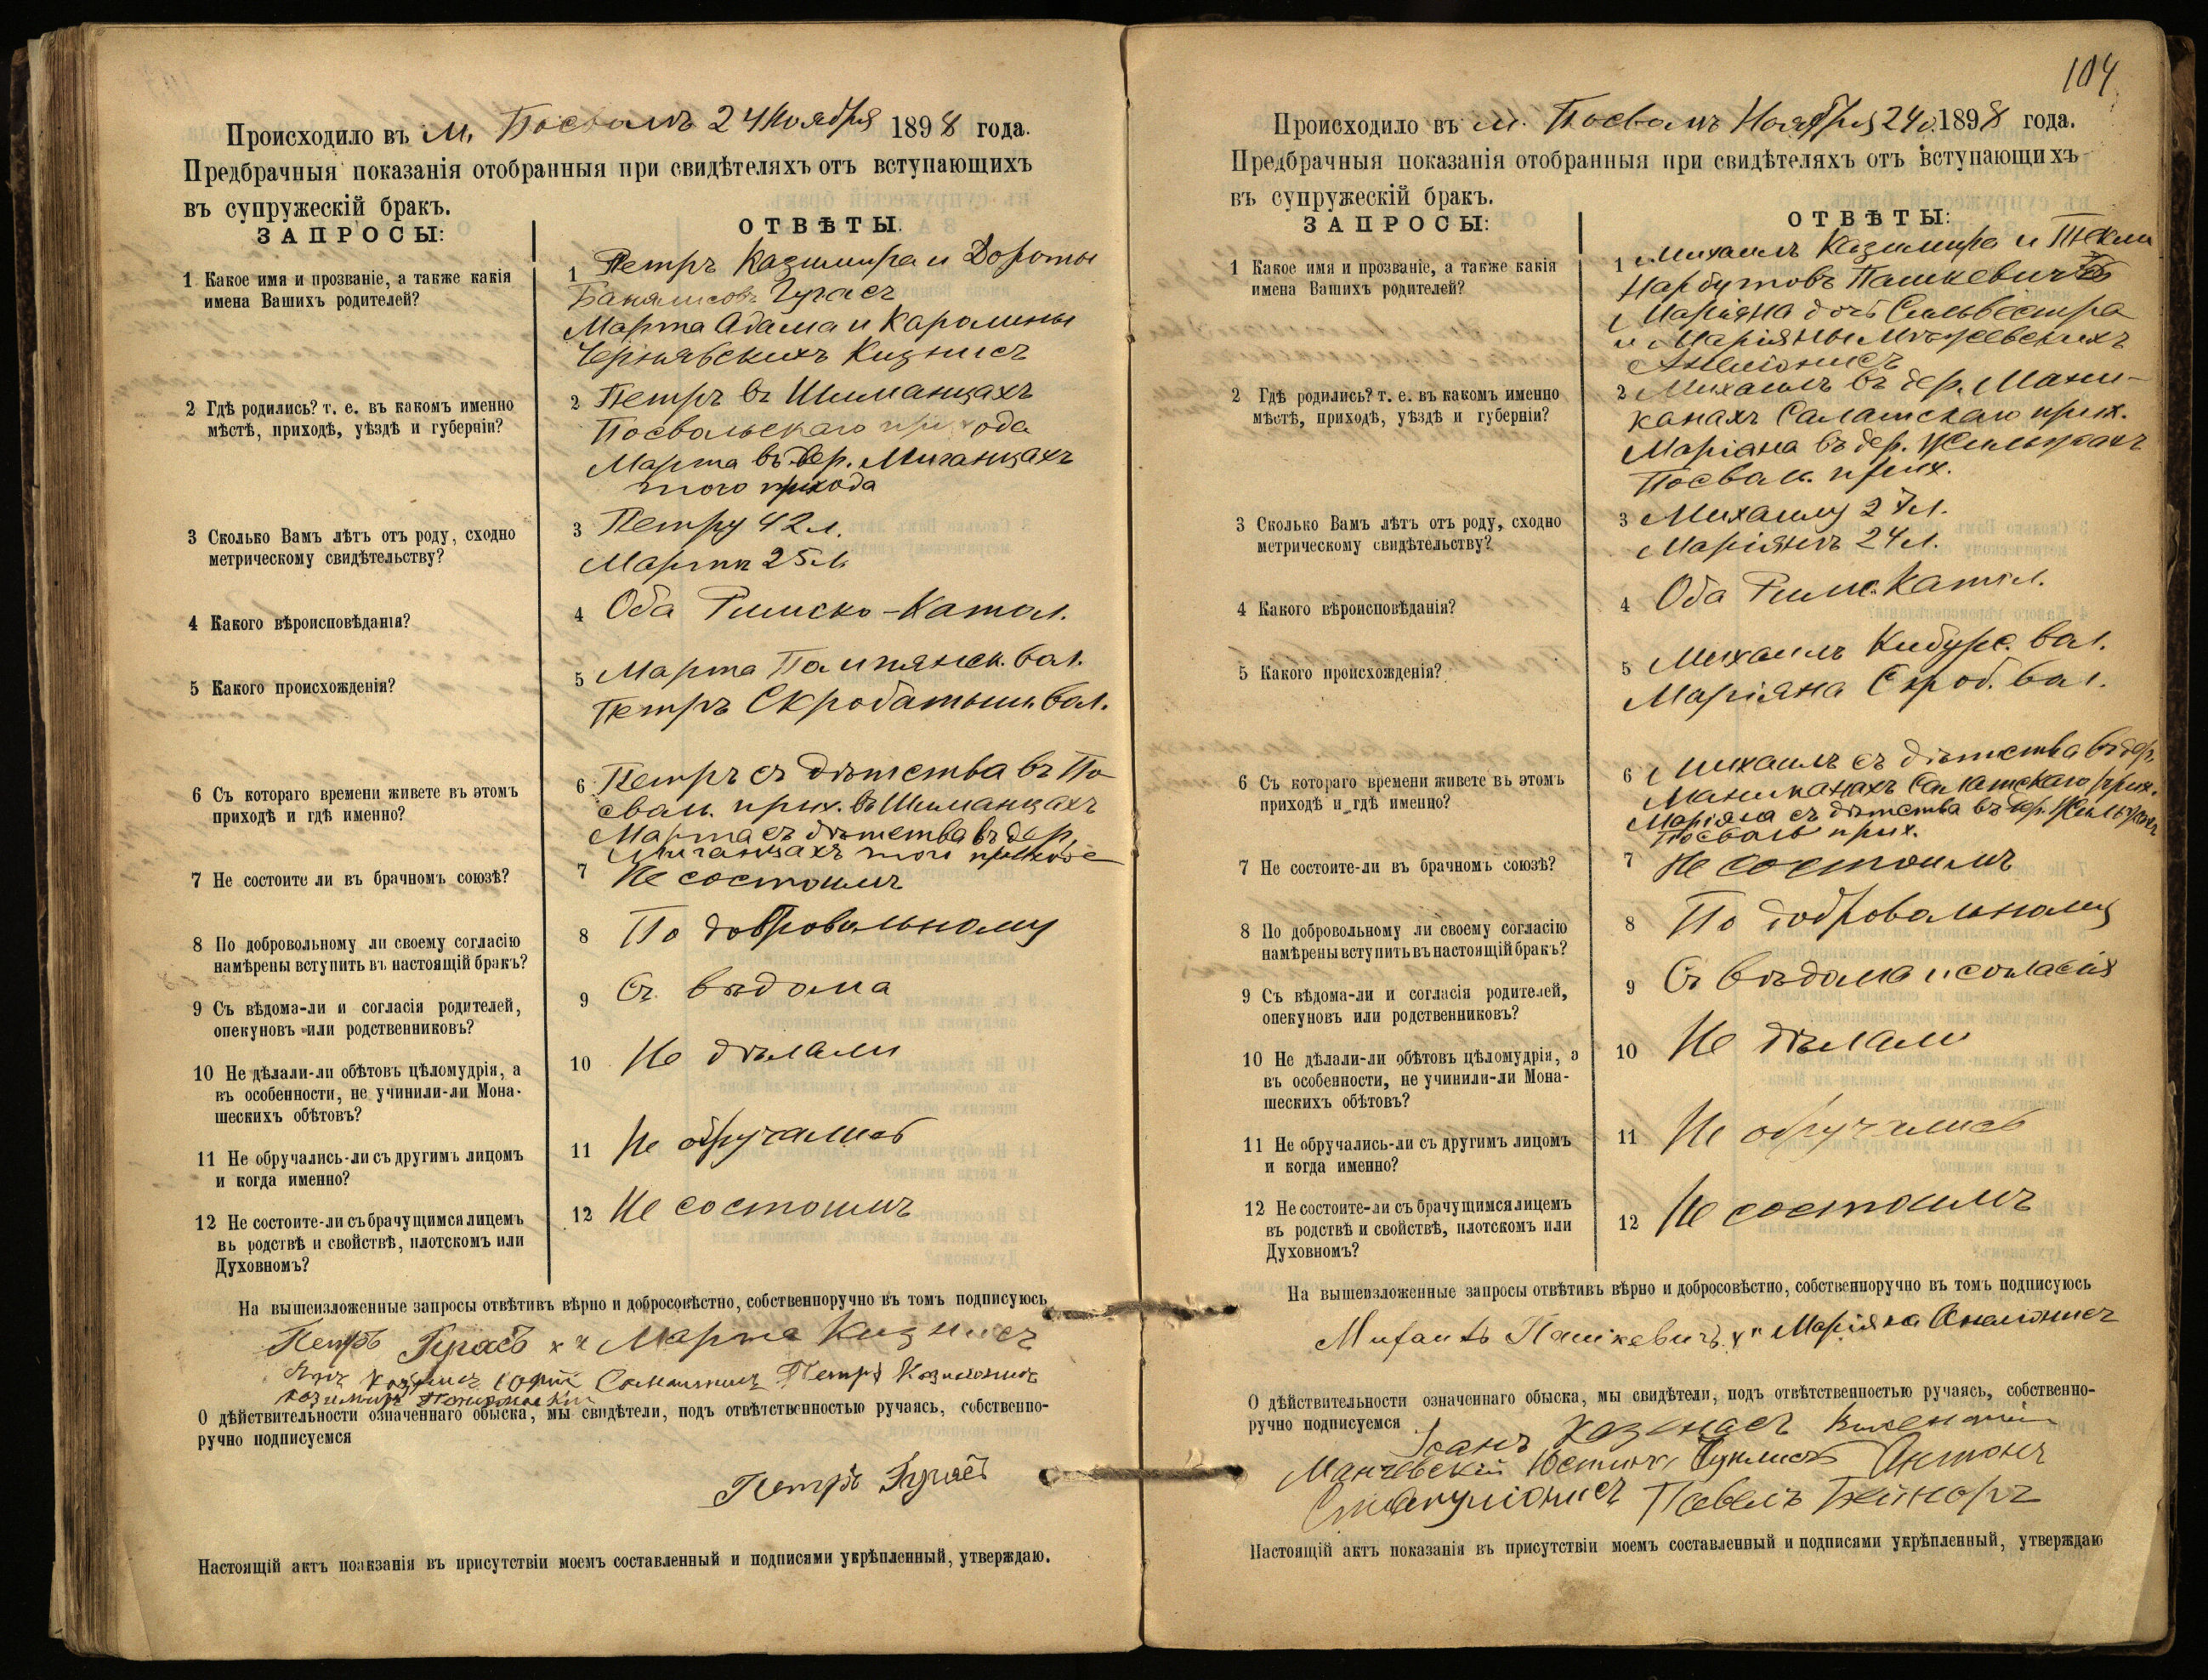 Происходило въ м. Посвол 24 Ноября 1898 года.
Предбрачныя показанія отобранныя при свидѣтеляхъ отъ вступающихъ
въ супружескій бракъ.
ЗАПРОСЫ:
ОТВѢТЫ.
1 Какое имя и прозваніе, а также какія
имена Вашихъ родителей?
1 Петръ Казимира и Дороты
Гугасъ
Марта Адама и Каролины
Чернявскихъ Кизнисъ
2 Гдѣ родились? т. е. въ какомъ именно
мѣстѣ, приходѣ, уѣздѣ и губерніи?
2 Петръ въ Шиманцахъ
Посвольскаго прихода
Марта въ дер. Миганцахъ
того прихода
3 Сколько Вамъ лѣтъ отъ роду, сходно
метрическому свидѣтельству?
3 Петру 42 л.
Марти 25 л.
4 Какого вѣроисповѣданія?
4 Оба Римско-Катол.
5 Какого происхожденія?
5 Марта Помпянск. вол.
Петръ Скробатышк. вол.
6 Съ котораго времени живете въ этомъ
приходѣ и гдѣ именно?
6 Петръ съ дѣтства въ По
свол. прих. въ Шиманцахъ
Марта съ дѣтства въ дер.
Миганцахъ того прихода
7 Не состоите ли въ брачномъ союзѣ?
7 Не состоимъ
8 По добровольному ли своему согласію
намѣрены вступить въ настоящій бракъ?
8 По добровольному
9 Съ вѣдома-ли и согласія родителей,
опекуновъ или родственниковъ?
9 Съ вѣдома
10 Не дѣлали-ли обѣтовъ цѣломудрія, а
въ особенности, не учинили-ли Мона-
шескихъ обѣтовъ?
10 Не дѣлали
11 Не обручались-ли съ другимъ лицомъ
и когда именно?
11 Не обручались
12 Не состоите-ли съ брачущимся лицемъ
въ родствѣ и свойствѣ, плотскомъ или
Духовномъ?
12 Не состоимъ
На вышеизложенные запросы отвѣтивъ вѣрно и добросовѣстно, собственноручно въ томъ подписуюсь
Петръ Гугасъ х х Марта Кизнисъ
Петръ
Казимиръ
О дѣйствительности означеннаго обыска, мы свидѣтели, подъ отвѣтственностью ручаясь, собственно-
ручно подписуемся
Петръ Гугасъ
Настоящій актъ поакзанія въ присутствіи моемъ составленный и подписями укрѣпленный, утверждаю.
104
Происходило въ м. Ноября 24 1898 года.
Предбрачныя показанія отобранныя при свидѣтеляхъ отъ вступающихъ
въ супружескій бракъ.
ЗАПРОСЫ:
ОТВѢТЫ:
1 Какое имя и прозваніе, а также какія
имена Вашихъ родителей?
1 Михаилъ Казимира и Текли
Нарбутовъ Пашкевичъ
Маріяна дочь Сильвестра
и Маріянны
2 Гдѣ родились? т. е. въ какомъ именно
мѣстѣ, приходѣ, уѣздѣ и губерніи?
2 Михаилъ въ дер. Мани-
канахъ Салатскаго прих.
Маріана въ дер.
Посвол. прих.
3 Сколько Вамъ лѣтъ отъ роду, сходно
метрическому свидѣтельству?
3 Михаилу 27 л.
Маріянѣ 24 л.
4 Какого вѣроисповѣданія?
4 Оба Римс. Катол.
5 Какого происхожденія?
5 Михаилъ Кибурс. вол.
Маріяна Скроб. вол.
6 Съ котораго времени живете въ этомъ
приходѣ и гдѣ именно?
6 Михаилъ съ дѣтства въ дер.
Маниканахъ Салатскаго прих.
Маріяна съ дѣтства въ дер.
Посволь прих.
7 Не состоите-ли въ брачномъ союзѣ?
7 Не состоимъ
8 По добровольному ли своему согласію
намѣрены вступить въ настоящій бракъ?
8 По добровольному
9 Съ вѣдома-ли и согласія родителей,
опекуновъ или родственниковъ?
9 Съ вѣдома и согласія
10 Не дѣлали-ли обѣтовъ цѣломудрія, а
въ особенности, не учинили-ли Мона-
шескихъ обѣтовъ?
10 Не дѣлали
11 Не обручались-ли съ другимъ лицомъ
и когда именно?
11 Не обручались
12 Не состоите-ли съ брачущимся лицемъ
въ родствѣ и свойствѣ, плотскомъ или
Духовномъ?
12 Не состоимъ
На вышеизложенные запросы отвѣтивъ вѣрно и добросовѣстно, собственноручно въ томъ подписуюсь
Пашкевичъ Маріяна
О дѣйствительности означеннаго обыска, мы свидѣтели, подъ отвѣтственностью ручаясь, собственно-
ручно подписуемся
Антонъ
Павелъ
Настоящій актъ показанія въ присутствіи моемъ составленный и подписями укрѣпленный, утверждаю